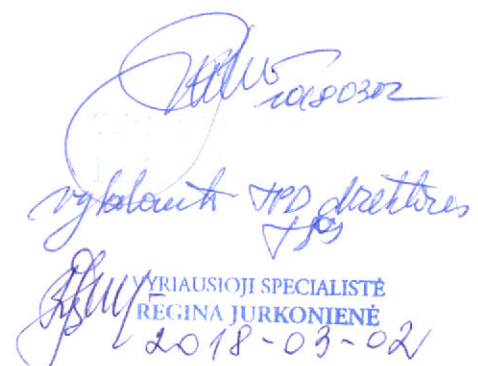 20180302
vykdanti TPD direktorės
VYRIAUSIOJI SPECIALISTĖ
REGINA JURKONIENĖ
2018-03-02